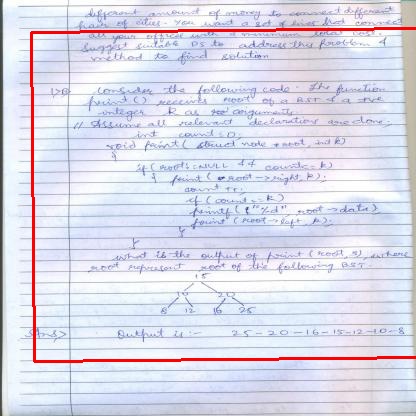 different amount of money to connect different
pairs of cities. You want a set of lines that connect
all your offices with a minimum total cost.
Suggest suitable DS to address this problem &
method to find solution
Consider the following code. The function
print() receives root of a BST & a +ve
integer k as arguments.
// Assume all relevant declarations are done.
int count=0;
void print( struct node *root, int k)
{
if(root!=NULL && count<=k)
{ print( root->right, k);
count ++;
if(count<=k)
printf( "%d" root->data)
print (root->left, k);
}
}
what is the output of print (root, 3), where
root represent root of the following BST.
15
10 20
8 12 16 25
Ans> Output is:- 25-20-16-15-12-10-8